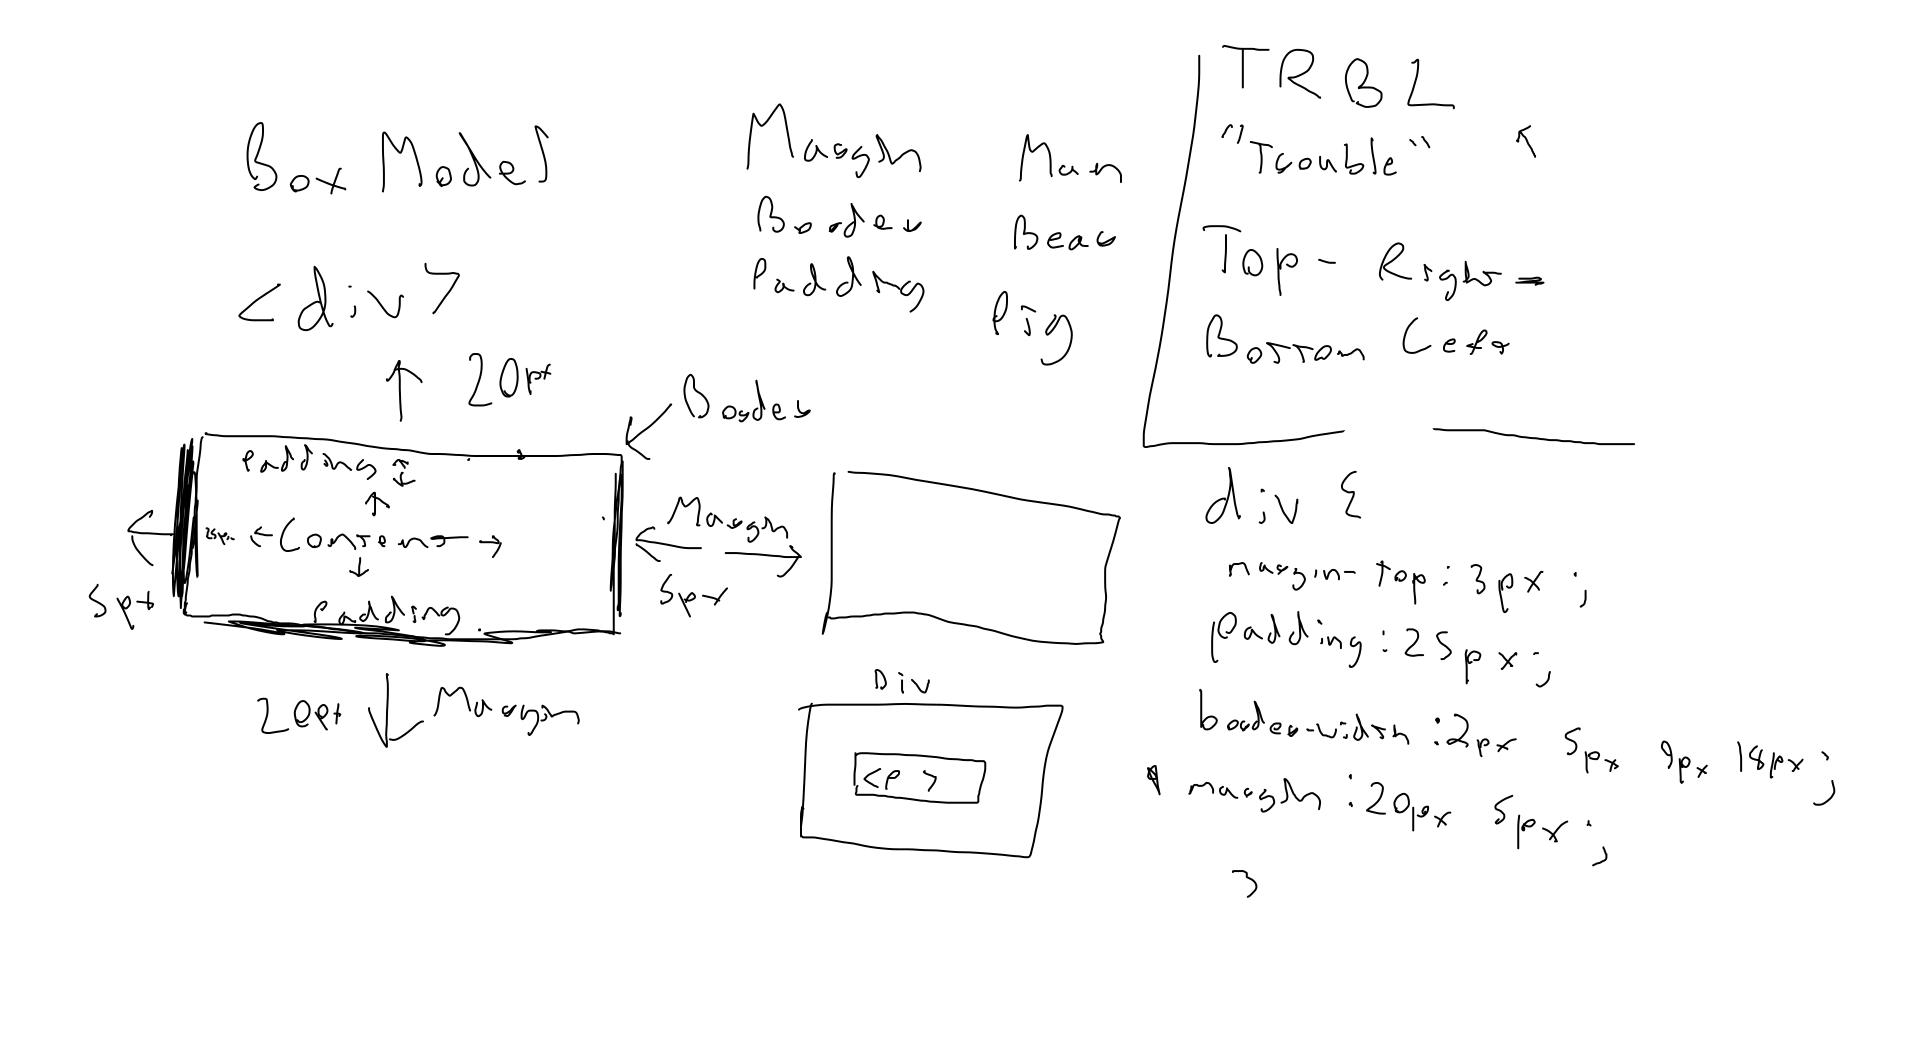 Box Model
<div>
20px
Border
Padding
25px
Content
Padding
5px
20px
Margin
Margin
5px
Margin
Border
Padding
Man
Bear
Pig
Div
<p>
TRBL
"Trouble"
Top - Right -
Bottom Left
div {
margin-top: 3px;
padding: 25px;
border-width: 2px 5px 9px 18px;
margin: 20px 5px;
}